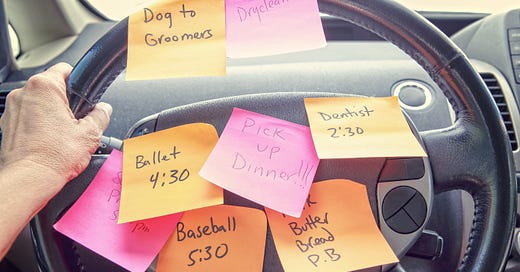 Dog to
Groomers
Dryclean
Dentist
2:30
Pick
up
Dinner!!!
Ballet
4:30
pm
Baseball
5:30
Butter
Bread
P.B